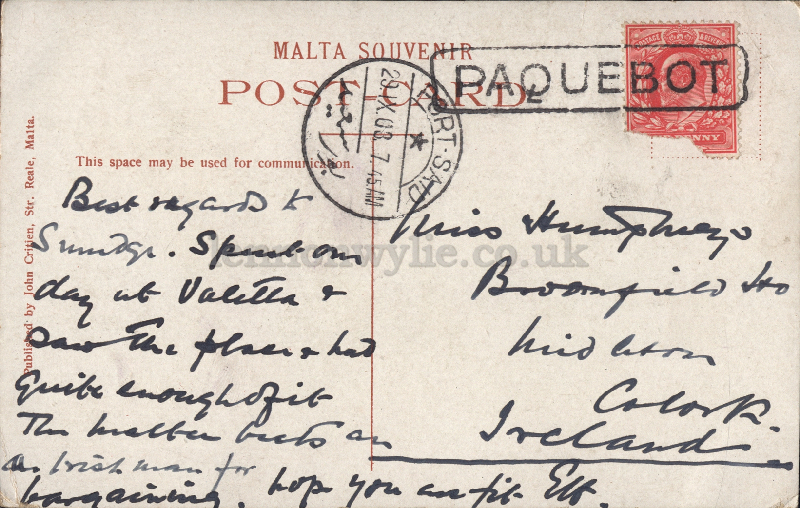 MALTA SOUVENIR
POST-CARD
PAQUEBOT
POSTAGE
NNY
PORT-SAID
29 IX 08. 7 45 AM
This space may be used for communication.
Published by John Critien, Str. Reale, Malta.
lennonwylie.co.uk
Best regards to
Smudge. Spent one
day at Valetta &
saw the place & had
quite enough of it
The Maltee beats an
an Irishman for
bargaining, hope you are fit Elf.
Miss Humphreys
Broomfield Ho
Midleton
Co Cork.
Ireland